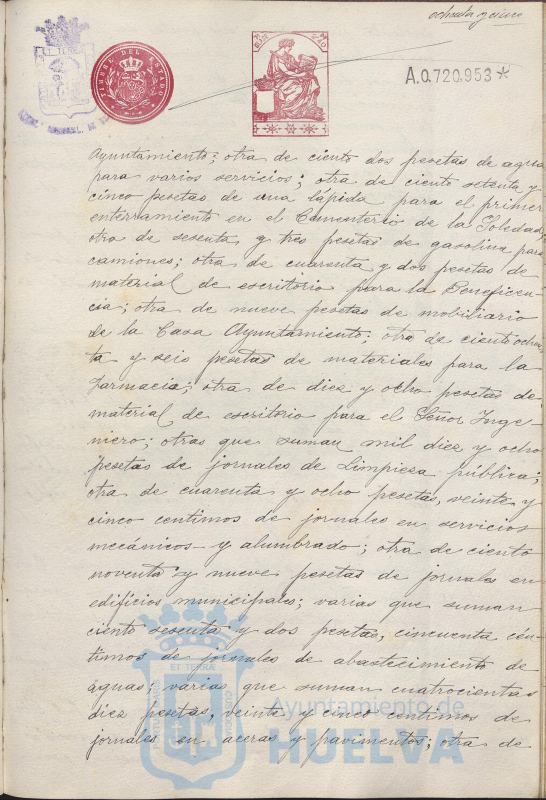 ochenta y cinco
TIMBRE DEL ESTADO
A.0.720.953*
Ayuntamiento; otra de ciento dos pesetas de agua
para varios servicios; otra de ciento setenta y
cinco pesetas de una lápida para el primer
enterramiento en el Cementerio de la Soledad;
otra de sesenta y tres pesetas de gasolina para
camiones; otra de cuarenta y dos pesetas de
material de escritorio para la Beneficen-
cia; otra de nueve pesetas de mobiliario
de la Casa Ayuntamiento; otra de ciento ochen-
ta y seis pesetas de materiales para la
Farmacia; otra de diez y ocho pesetas de
material de escritorio para el Señor Inge-
niero; otras que suman mil diez y ocho
pesetas de jornales de Limpieza pública;
otra de cuarenta y ocho pesetas, veinte y
cinco centimos de jornales en servicios
mecánicos y alumbrado; otra de ciento
noventa y nueve pesetas de jornales en
edificios municipales; varias que suman
ciento sesenta y dos pesetas, cincuenta cén-
timos de jornales de abastecimiento de
aguas; varias que suman cuatrocientas
diez pesetas, veinte y cinco centimos de
jornales en aceras y pavimentos; otra de
Ayuntamiento de
HUELVA